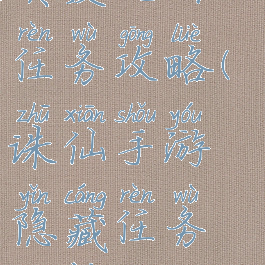 rèn wù gōng lüè
任务攻略(
zhū xiān shǒu yóu
诛仙手游
yǐn cáng rèn wù
隐藏任务